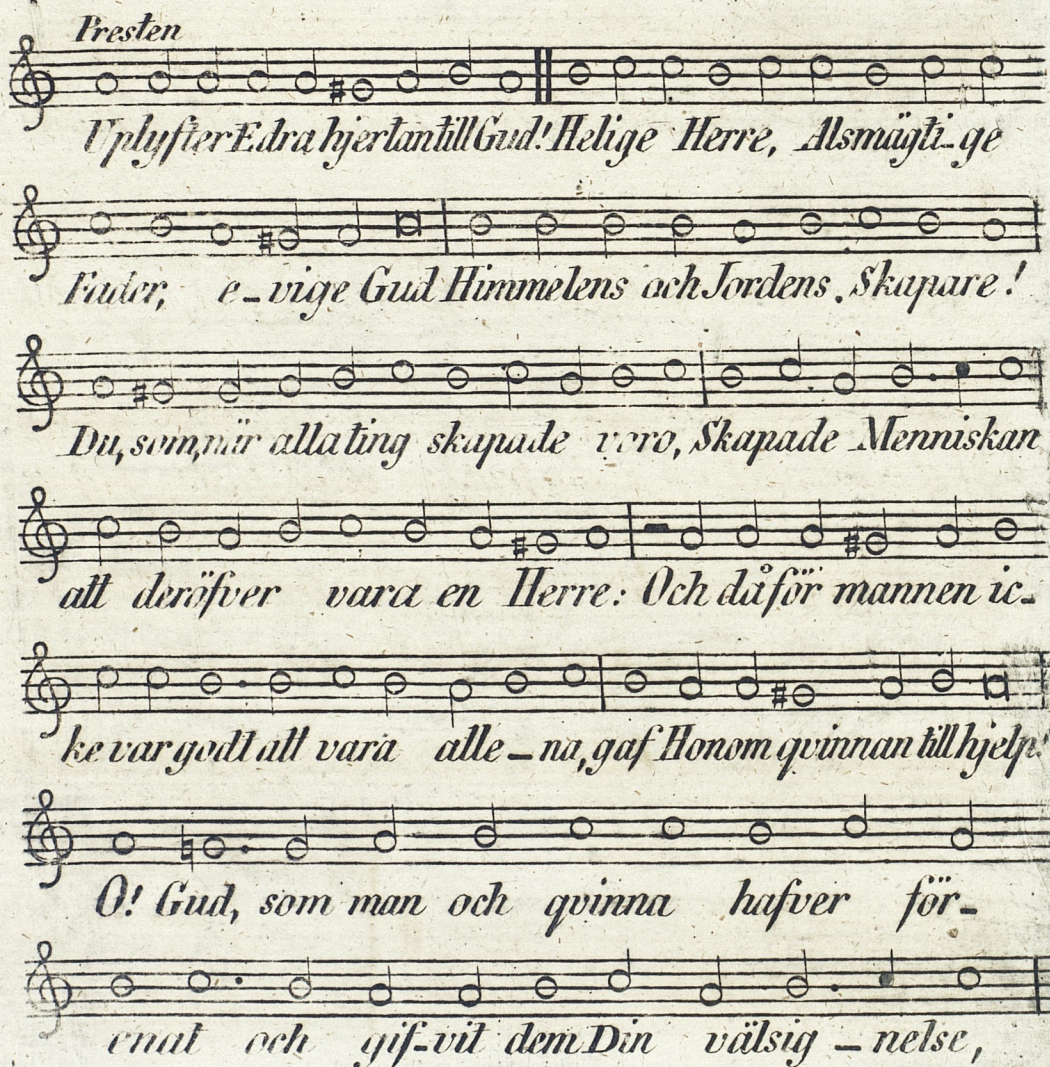 Presten
Uplyfter Edra hjertan till Gud! Helige Herre, Alsmägti-ge
Fader, e-vige Gud Himmelens och Jordens. Skapare!
Du, som, när alla ting skapade voro, Skapade Menniskan
att deröfver vara en Herre: Och då för mannen ic-
ke var godt att vara alle-na, gaf Honom qvinnan till hjelp:
O! Gud, som man och qvinna hafver för-
enat och gif-vit dem Din välsig-nelse,